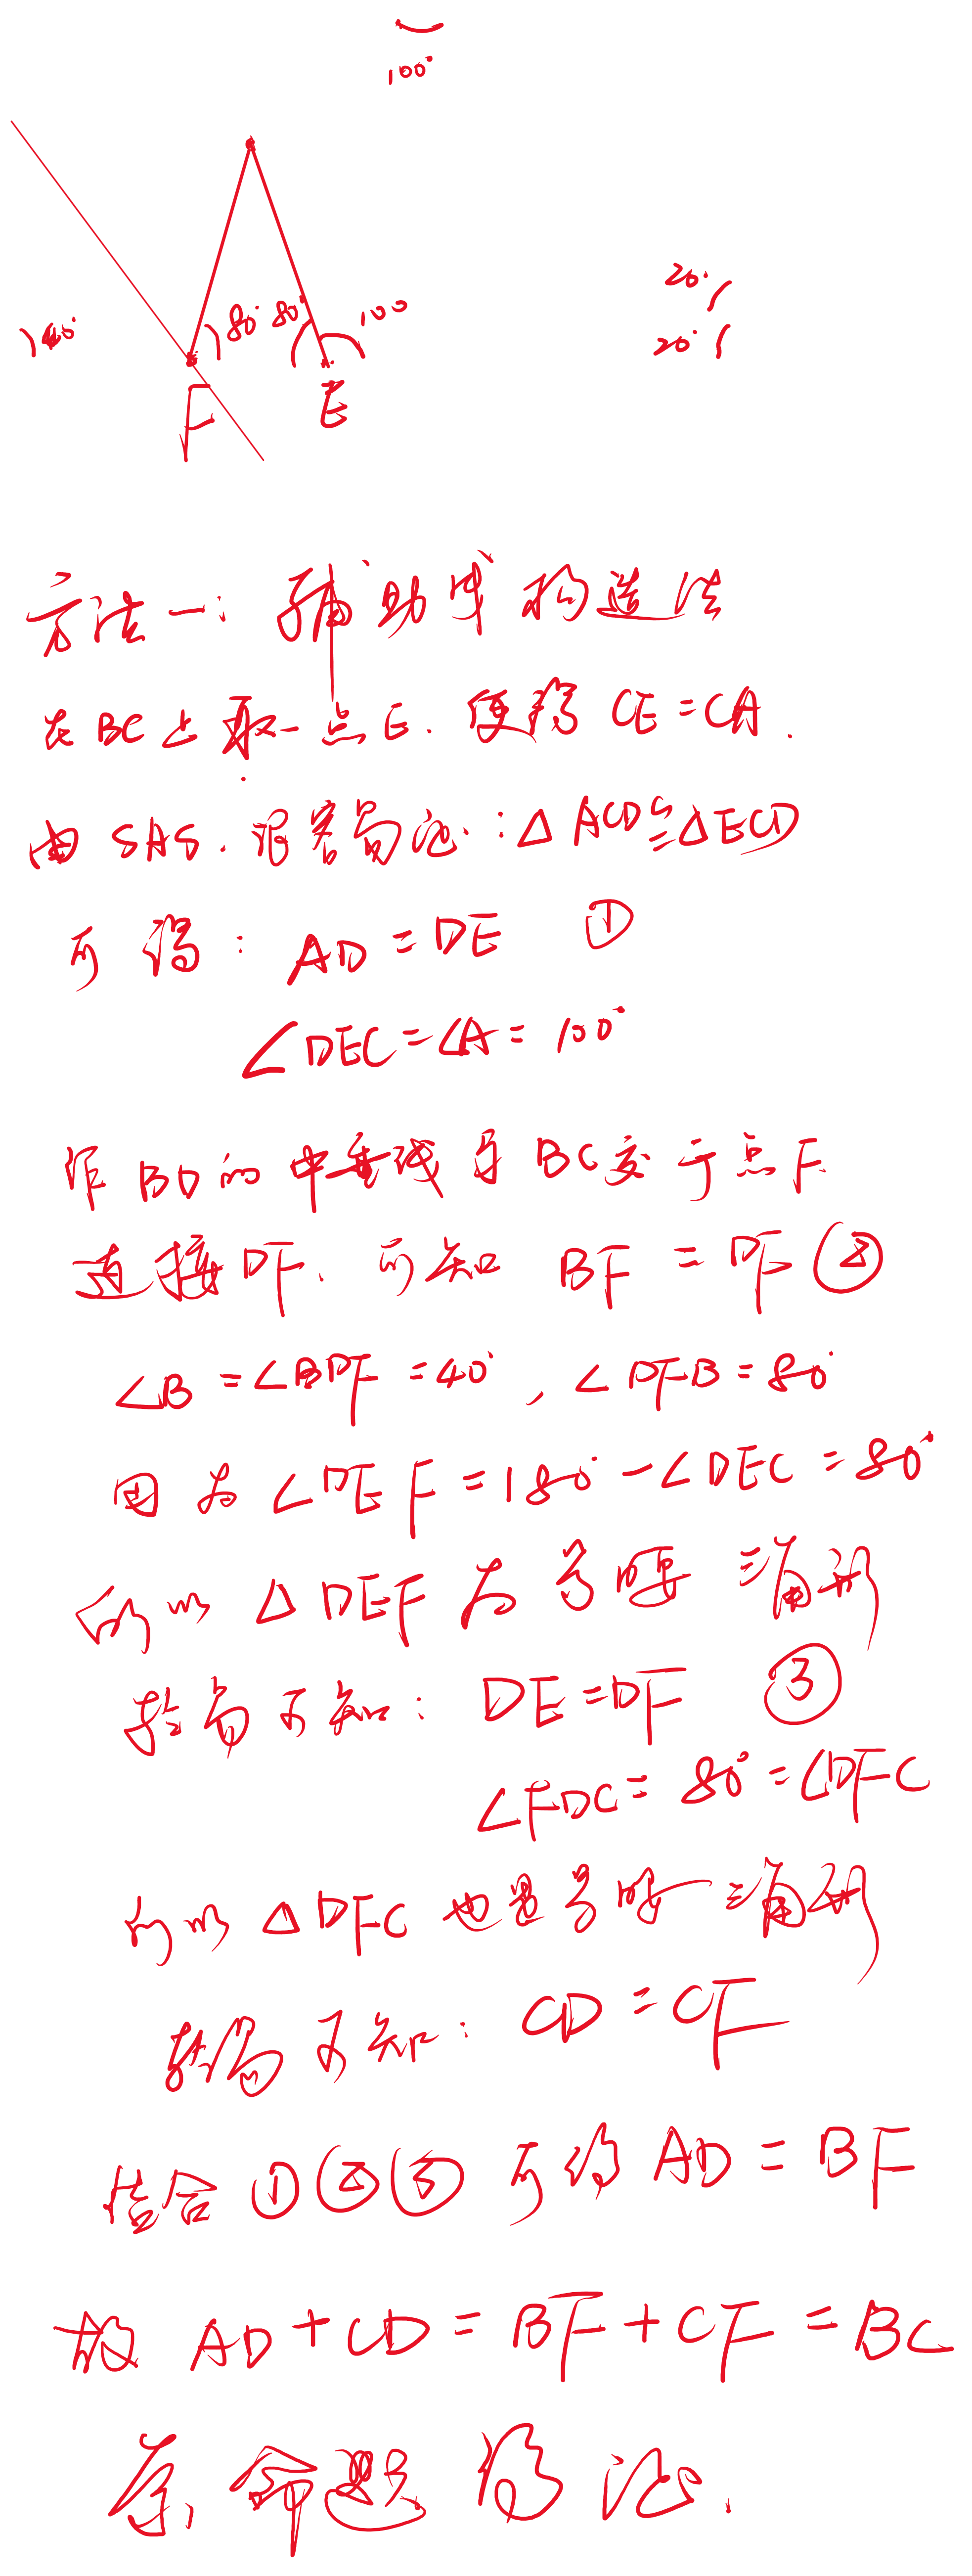 100°
80° 80° 100
20°
40°
20°
F E
方法一: 辅助线构造法
在BC上取一点E. 使得 CE=CA.
由 SAS. 很容易证: △ACD≌△ECD
可得: AD=DE ①
∠DEC=∠A=100°
作BD的中垂线与BC交于点F.
连接DF. 可知 BF=DF ②
∠B=∠BDF=40°, ∠DFB=80°
因为∠DEF=180°-∠DEC=80°
所以△DEF为等腰三角形
轻易可知: DE=DF ③
∠FDC=80°=∠DFC
所以△DFC也是等腰三角形
轻易可知: CD=CF
结合①②③可得AD=BF
故 AD+CD=BF+CF=BC
原命题得证.